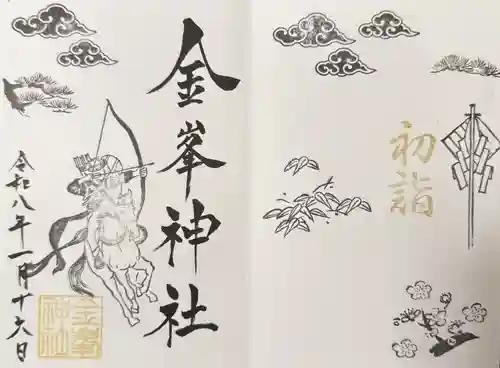 初詣
金峯神社
令和八年一月十六日
金峯
神社